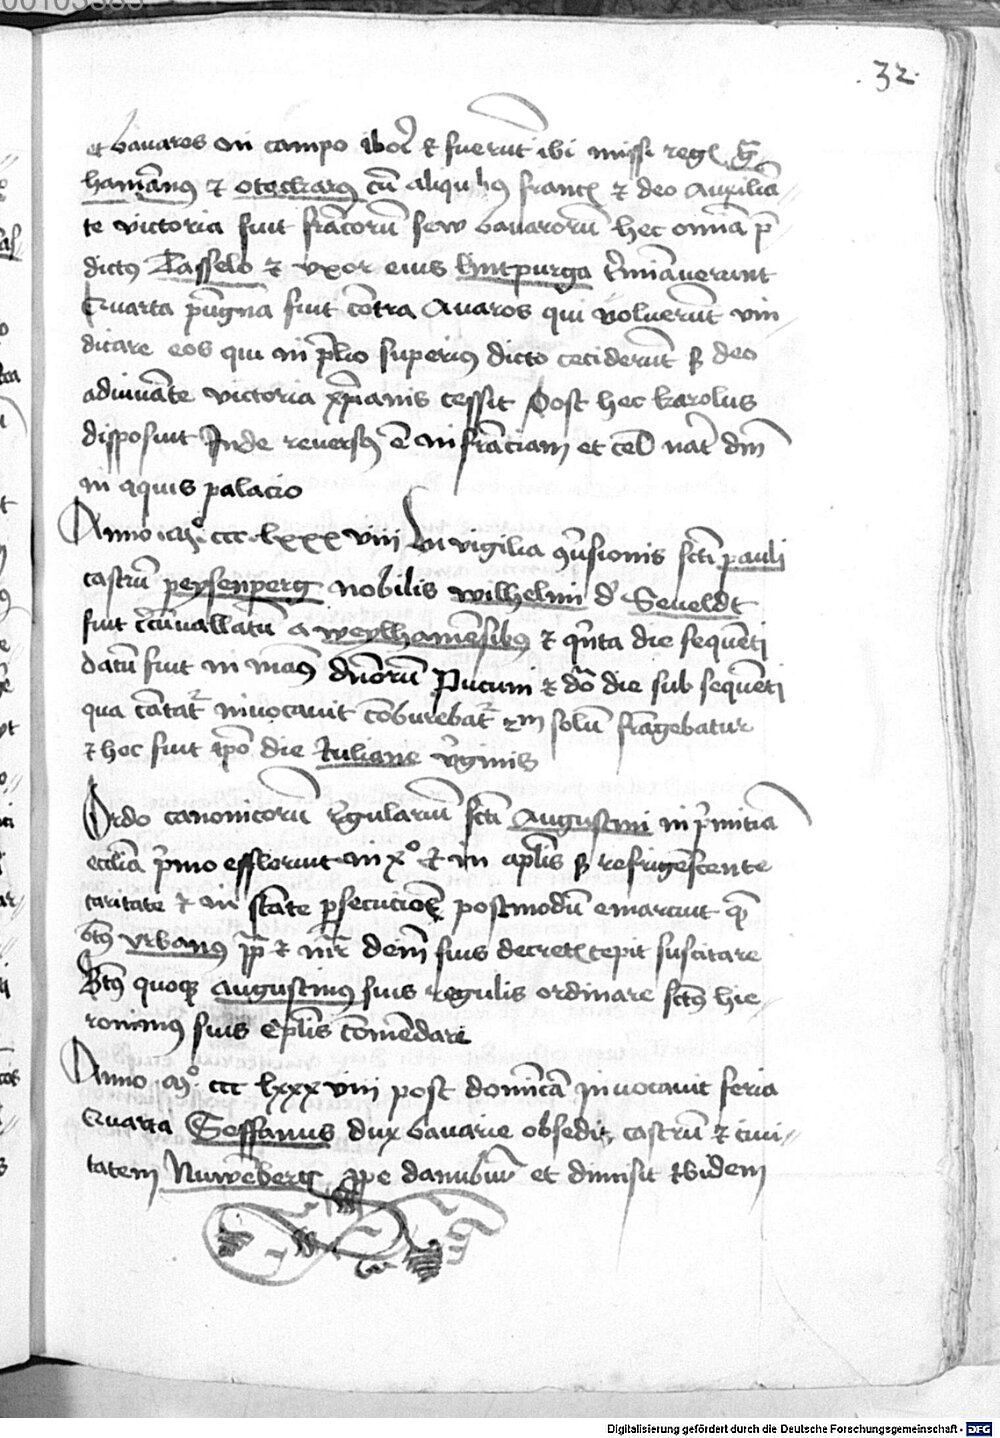 32
et bavaros in campo ibor et fuerūt ibi missi regꝭ Gra
hamānus et otackarus cū aliquibus francꝭ et deo Auxiliā
te victoria fuit frācorū sew bavarorū hec omnia p̄
dictus Tasselo et vxor eius lintpurga t̄miāverunt
Quarta pūgna fuit cōtra Avaros qui voluerūt vin
dicare eos qui in p̄lio superius dicto ceciderūt sꝫ deo
adiuuāte victoria xp̄ianis cessit Post hec karolus
disposuit Inde reversus ē in frāciam et celḃ nat̄ dn̄i
in aquis palacio
Anno mͦ ccc lxxx viii In vigilia ꝯv̄sionis scti pauli
castrū peysenperg nobilis wilhelmi d' Seveldt
fuit cc̄ūvallatū a weylhamēsibus et qn̄ta die sequēti
datū fuit in manꝰ dn̄orū Ducum et dō die sub sequēti
qua cātat̄ invocavit cōburebat̄ et in solū frāgebatur
et hoc fuit ip̄o die Juliane v̄ginis
Ordo canonicorū r̄gulariū scti Augustini in p̄mitiā
ecclīa p̄mo effloruit in xͦ et in ap̄lis sꝫ refrigēscente
caritate et in state ꝑsecucioē postmodū emarcuit quē
btūs vrbanus pp̄ et mr̄ dein̄ suis decretꝭ cepit suscitare
Btūs quoqꝫ augustinus suis regulis ordinare sctūs hie
ronimus suis ep̄lis cōmēdare
Anno mͦ ccc lxxx viii post domīcā Invocavit feria
Quarta Steffanus dux bavarie obsedit castrū et civi
tatem Nuwēberg ꝓpe danubiū et dimisit ibidem
Digitalisierung gefördert durch die Deutsche Forschungsgemeinschaft - DFG